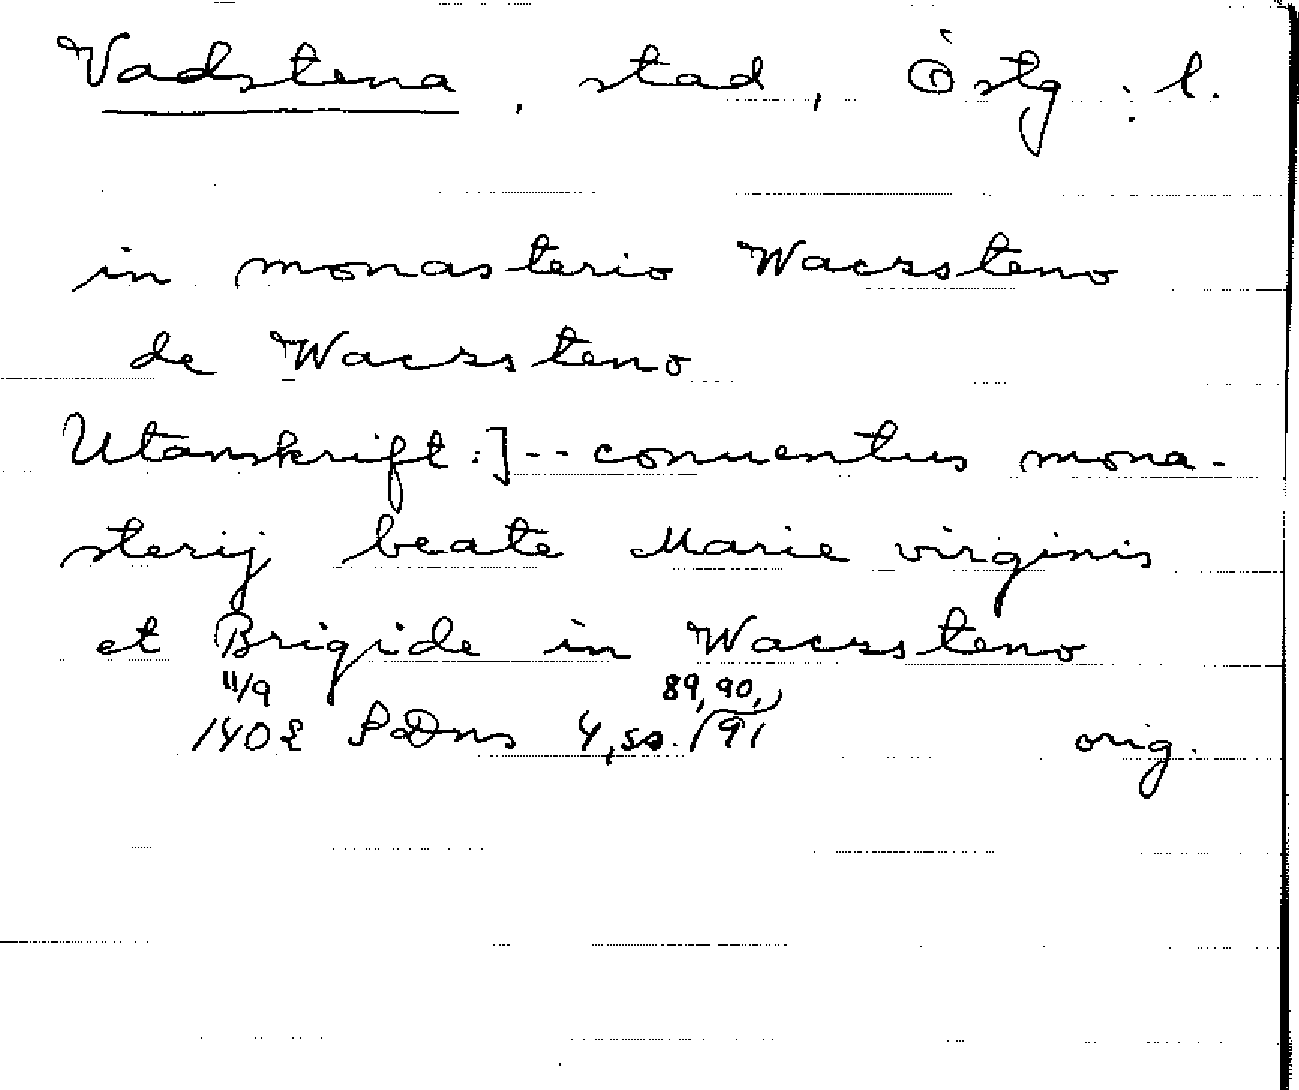 Vadstena, stad, Östg:l.
in monasterio Waczsteno
de Waczsteno
Utanskrift:]-- conuentus mona-
sterij beate Marie virginis
et Brigide in Waczsteno
11/9 89, 90,
1402 SDns 4, ss. 91 orig.